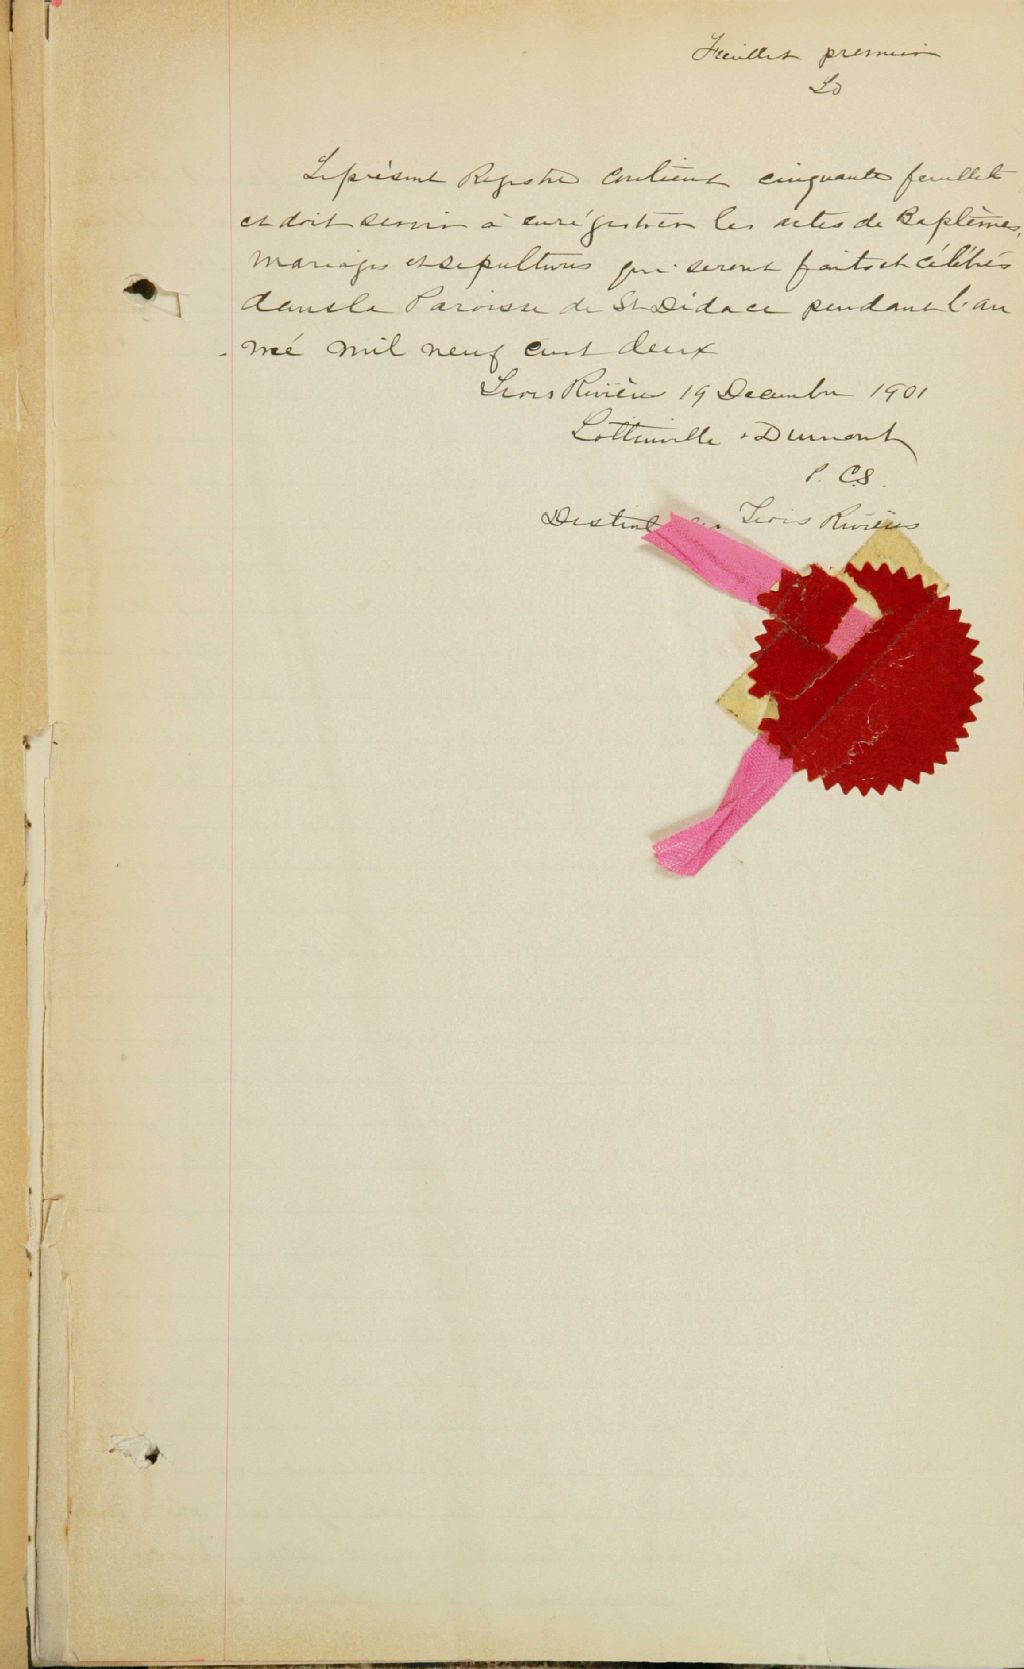 Feuillet premier
LD
Le présent Registre contient cinquante feuillets
et doit servir à enrégistrer les actes de Baptêmes,
mariages et sepultures qui seront faits et célébrés
dans la Paroisse de St Didace pendant l'an
née mil neuf cent deux
Trois Rivières 19 Decembre 1901
Lottinville & Dumont
P. C.S.
District des Trois Rivières